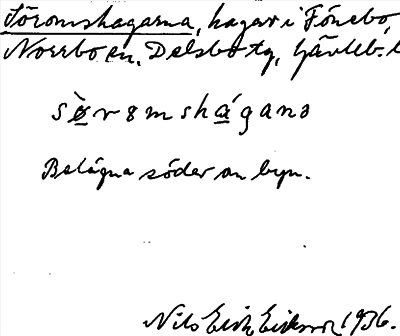 Söromshagarna, hagar i Fönebo,
Norrbo sn, Delsbo tg, Gävleb. l
sø̀rømshágano
Belägna söder om byn.
Nils Erik Eriksson 1936.